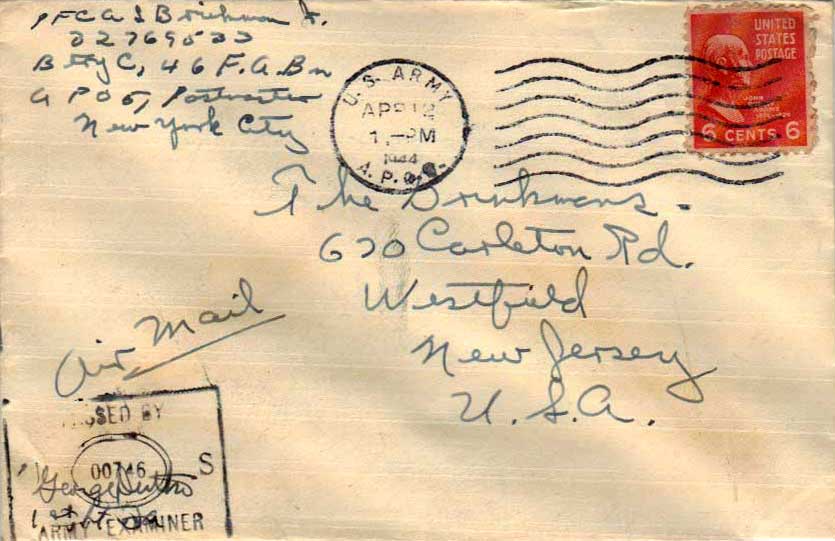 PFC A L Brinkman Jr.
32769533
Btty C, 46 F.A. Bn
APO 5, Postmaster
New York City
U.S. ARMY
APR 12
1-PM
1944
A.P.O.
UNITED
STATES
POSTAGE
JOHN
QUINCY
ADAMS
6 CENTS 6
The Brinkmans -
630 Carleton Rd.
Westfield
New Jersey
U.S.A.
Air Mail
PASSED BY
00746 S
George
1st Lt
ARMY EXAMINER